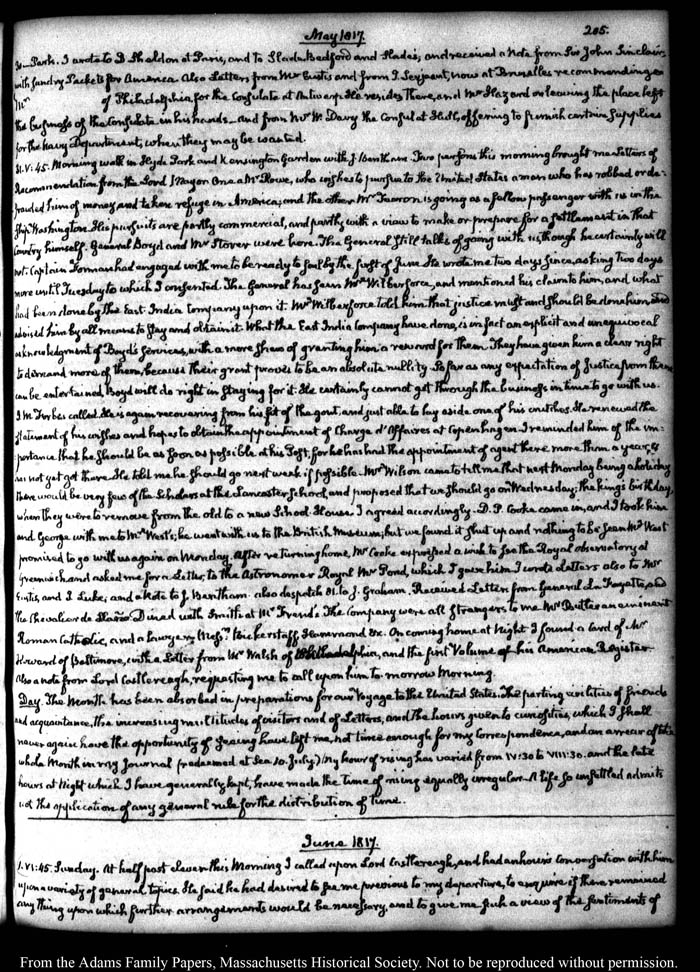 May 1817.
205.
Park. I wrote to D. Sheldon at Paris, and to Slade Bedford and Slades, and received a Note from Sir John Sinclair
with sundry Packets for America. Also Letters from Mr Curtis and from J. Serjeant, now at Brusselles recommending a
Mr of Philadelphia, for the Consulate at Antwerp. He resides there, and Mr Hazard on leaving the place left
the business of the Consulate in his hands—and from Mr W. Davy the Consul at Hull, offering to furnish certain supplies
for the Navy Department, when they may be wanted.
31. V:45. Morning walk in Hyde Park and Kensington Garden with J. Bentham. Two persons this morning brought me Letters of
Recommendation from the Lord Mayor. One a Mr Rowe, who wishes to pursue to the United States a man who has robbed or de-
frauded him of money and taken refuge in America; and the other Mr Fearon is going as a fellow passenger with us in the
Ship Washington. His pursuits are partly commercial, and partly with a view to make or prepare for a settlement in that
Country himself. General Boyd and Mr Storer were here. The General still talks of going with us, though he certainly will
not. Captain Forman had engaged with me to be ready to sail by the first of June. He wrote me two days since, asking two days
more until Tuesday to which I consented. The General has seen Mr Wilberforce, and mentioned his claim to him, and what
had been done by the East India Company upon it. Mr Wilberforce told him that justice must and should be done him, and
advised him by all means to stay and obtain it. What the East India Company have done, is in fact an explicit and unequivocal
acknowledgment of Boyd's services, with a mere shew of granting him a reward for them. They have given him a clear right
to demand more of them, because their grant proves to be an absolute nullity. So far as any expectation of Justice from them
can be entertained, Boyd will do right in staying for it. He certainly cannot get through the business in time to go with us.
J M. Forbes called. He is again recovering from his fit of the gout, and just able to lay aside one of his crutches. He renewed the
statement of his wishes and hopes to obtain the appointment of Chargé d'Affaires at Copenhagen. I reminded him of the im-
portance that he should be as soon as possible at his Post, for he has had the appointment of agent there more than a year, &
has not yet got there. He told me he should go next week if possible. Mr Wilson came to tell me that next Monday being a holiday
there would be very few of the Scholars at the Lancaster School, and proposed that we should go on Wednesday, the king's birthday,
when they were to remove from the old to a new School House. I agreed accordingly. D. P. Cooke came in, and I took him
and George with me to Mr West's; he went with us to the British Museum; but we found it shut up and nothing to be seen. Mr West
promised to go with us again on Monday. After returning home, Mr Cooke expressed a wish to see the Royal observatory at
Greenwich and asked me for a Letter, to the Astronomer Royal Mr Pond, which I gave him. I wrote Letters also to Mr
Curtis, and J. Luke, and a Note to J. Bentham. also despatch 81. to J. Graham. Received Letters from General La Fayette, and
the Chevalier de Llaño. Dined with Smith at Mr Freud's. The Company were all strangers to me. Mr Butler an eminent
Roman Catholic, and a lawyer, Messrs Bickerstaff, Hanerand &c. On coming home at Night I found a Card of Mr
Howard of Baltimore, with a Letter from Mr Walsh of Philadelphia, and the first Volume of his American Register.
Also a note from Lord Castlereagh, requesting me to call upon him to morrow Morning.
Day. The Month has been absorbed in preparations for our Voyage to the United States. The parting civilities of friends
and acquaintance, the increasing multitudes of visitors and of Letters, and the hours given to curiosities, which I shall
never again have the opportunity of seeing have left me, not time enough for my Correspondence, and an arrear of the
whole Month in my Journal (redeemed at Sea 10. July.) My hour of rising has varied from IV:30 to VIII:30. and the late
hours at Night which I have generally kept, have made the time of rising equally irregular. A life so unsettled admits
not the application of any general rule for the distribution of time.
June 1817.
1. VI:45. Sunday. At half past eleven this Morning I called upon Lord Castlereagh, and had an hour's conversation with him
upon a variety of general topics. He said he had desired to see me previous to my departure, to enquire if there remained
any thing upon which further arrangements would be necessary, and to give me such a view of the sentiments of
From the Adams Family Papers, Massachusetts Historical Society. Not to be reproduced without permission.